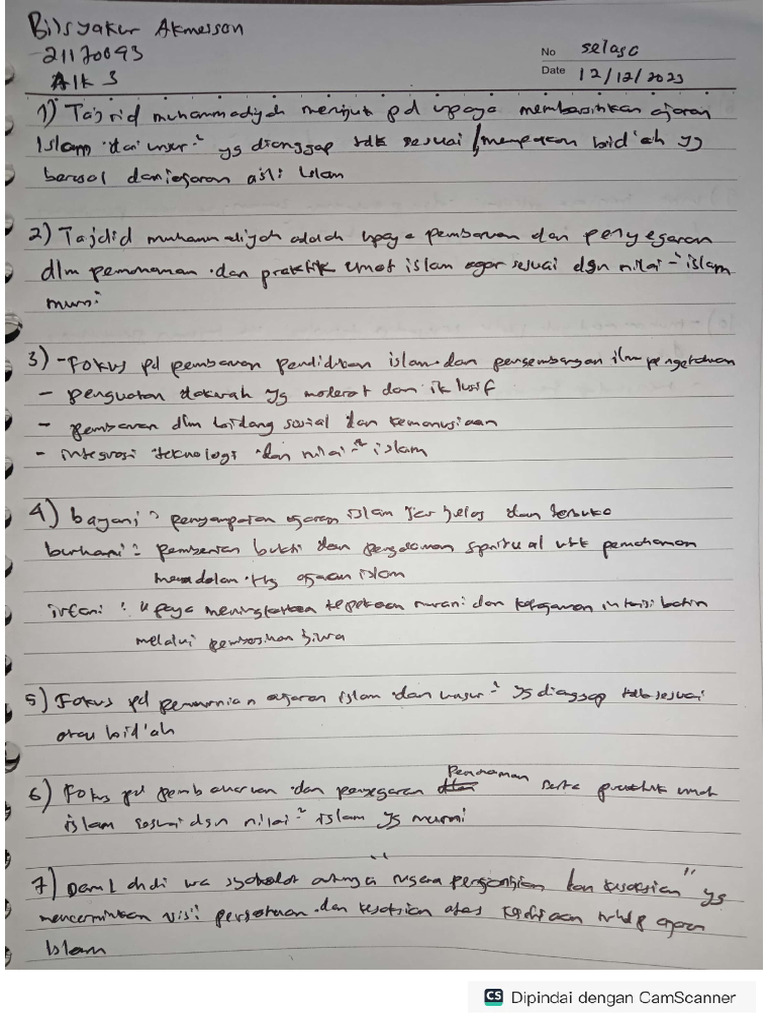 Bilsyakur Akmesson
21170093
AIK 3
No selasa
Date 12/12/2023
1) Tajrid muhammadiyah merujuk pd upaya membersihkan ajaran
Islam dari unsur-² yg dianggap tdk sesuai / merupakan bid'ah yg
berasal dari ajaran asli Islam
2) Tajdid muhammadiyah adalah upaya pembaruan dan penyegaran
dlm pemahaman dan praktik umat islam agar sesuai dgn nilai-² islam
murni
3) - Fokus pd pembaruan pendidikan islam dan pengembangan ilmu pengetahuan
- penguatan dakwah yg moderat dan iklusif
- pembaruan dlm bidang sosial dan kemanusiaan
- integrasi teknologi dan nilai-² islam
4) bayani : penyampaian ajaran islam jelas dan terbuka
burhani : pemberian bukti dan spritual utk pemahaman
mendalam ttg ajaran islam
irfani : upaya meningkatkan kepekaan nurani dan intuisi batin
melalui pembersihan jiwa
5) Fokus pd pemurnian ajaran islam dari unsur-² yg dianggap tdk sesuai
atau bid'ah
6) Fokus pd pembaharuan dan penyegaran pemahaman serta praktik umat
islam sesuai dgn nilai-² islam yg murni
7) Darul ahdi wa syahadah artinya negara perjanjian dan kesaksian" yg
mencerminkan visi persatuan dan kesaksian atas trhdp ajaran
Islam
CS Dipindai dengan CamScanner